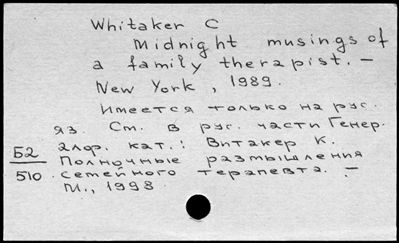 Whitaker C
Midnight musings of
a family therapist. —
New York, 1989.
Имеется только на рус.
яз. См. в рус. части Генер.
алф. кат.: Витакер К.
Полночные размышления
семейного терапевта. —
М., 1998
Б2
510